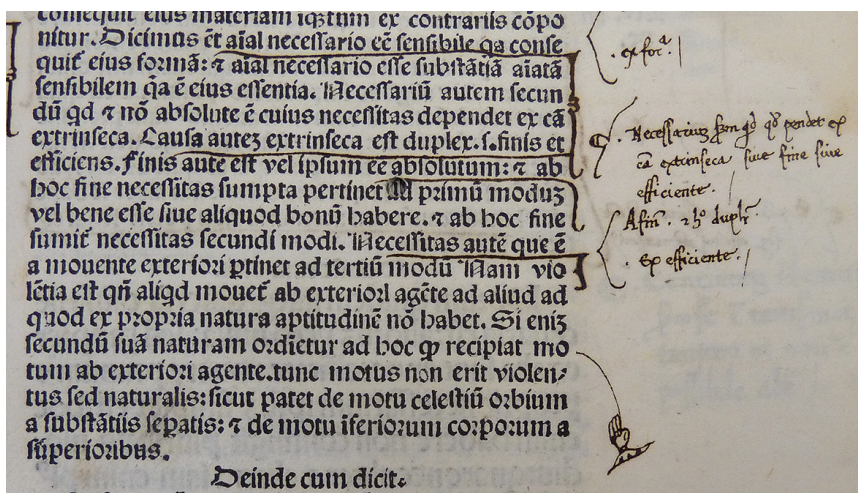 consequit eius materiam iqȝtum ex contrariis cōpo
nitur. Dicimus ēt aīal necessario eē sensibile qa conse
quit̄ eius formā: ⁊ aīal necessario esse substātiā aīatā
sensibilem q̄a ē eius essentia. Necessariū autem secun
dū qd ⁊ nō absolute ē cuius necessitas dependet ex cā
extrinseca. Causa auteȝ extrinseca est duplex. s. finis et
efficiens. Finis aute est vel ipsum eē absolutum: ⁊ ab
hoc fine necessitas sumpta pertinet Ad primū moduȝ
vel bene esse siue aliquod bonū habere. ⁊ ab hoc fine
sumit̄ necessitas secundi modi. Necessitas autē que ē
a mouente exteriori ꝑtinet ad tertiū modū Nam vio
lētia est qn̄ aliqd mouet̄ ab exteriori agēte ad aliud ad
quod ex propria natura aptitudinē nō habet. Si eniȝ
secundū suā naturam ordīetur ad hoc ꝙ recipiat mo
tum ab exteriori agente. tunc motus non erit violen/
tus sed naturalis: sicut patet de motu celestiū orbium
a substātiis seꝑatis: ⁊ de motu īferiorum corporum a
superioribus.
Deinde cum dicit.
ex forᵃ.
Necessariuȝ qd pendet ex
cā extrinseca siue fine siue
efficiente.
A finē. duplr̄
Ex efficiente.